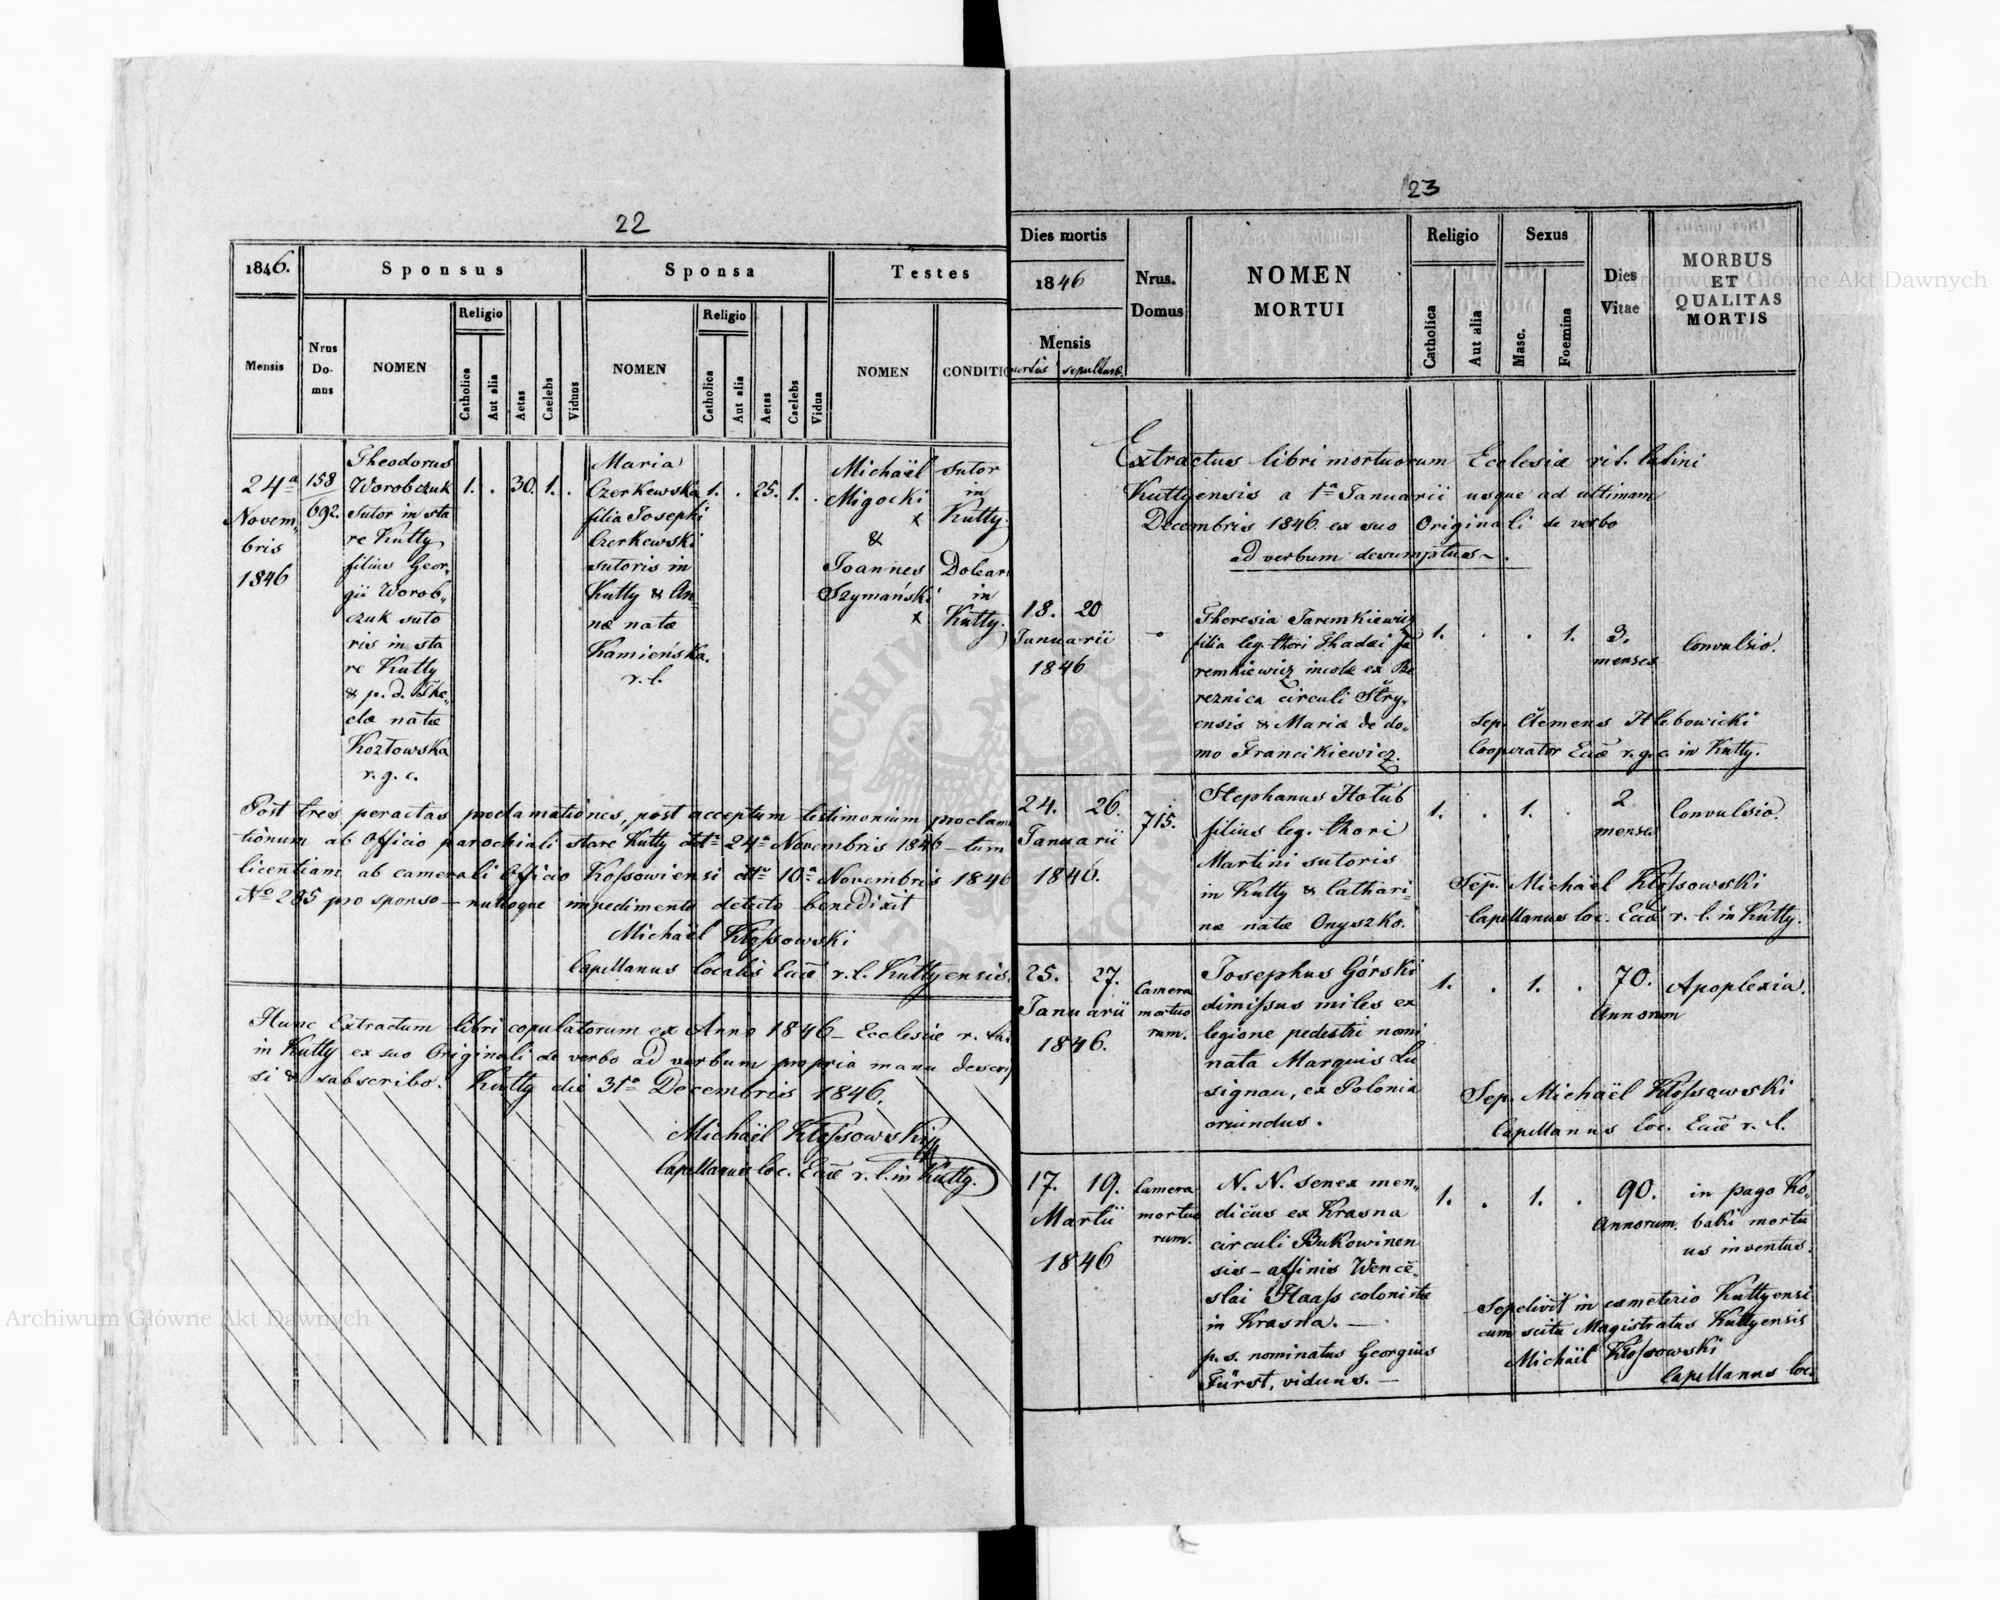 22
1846.
Sponsus
Sponsa
Testes
Mensis
Nrus
Do-
mus
NOMEN
Religio
Catholica
Aut alia
Aetas
Caelebs
Viduus
NOMEN
Religio
Catholica
Aut alia
Aetas
Caelebs
Vidua
NOMEN
CONDITIO
24ª
Novem„
bris
1846
158
692.
Theodorus
Worobczuk
sutor in sta
re Kutty
filius Geor„
gii Worob„
czuk suto
ris in sta
re Kutty
& p. d. The„
clæ natæ
Kozłowska
r. g. c.
1. . 30. 1. .
Maria
Czerkewska
filia Josephi
Czerkewski
sutoris in
Kutty & An
næ natæ
Kamieńska.
r. l.
1. . 25. 1. .
Michaël
Migocki
x
&
Joannes
Szymański
x
sutor
in
Kutty.
Dolear
in
Kutty.
Post tres peractas proclamationes, post acceptum testimonium proclam
tionum ab Officio parochiali stare Kutty ddtº 24ª Novembris 1846 – tum
licentiam ab camerali Officio Kossowiensi ddtº 10ª Novembris 1846
Nº 285 pro sponso – nulloque impedimento detecto benedixit
Michaël Kłossowski
Capellanus localis Eccæ r. l. Kuttyensis.
Hunc Extractum libri copulatorum ex Anno 1846 – Ecclesiæ r. lat
in Kutty ex suo Originali de verbo ad verbum propria manu descrip
si & subscribo. Kutty die 31ª Decembris 1846.
Michaël Kłossowski
Capellanus loc. Eccæ r. l. in Kutty.
23
Dies mortis
1846
Mensis
mortis
sepulturæ.
Nrus.
Domus
NOMEN
MORTUI
Religio
Catholica
Aut alia
Sexus
Masc.
Foemina
Dies
Vitae
MORBUS
ET
QUALITAS
MORTIS
Extractus libri mortuorum Ecclesiæ rit. latini
Kuttyensis a 1ª Januarii usque ad ultimam
Decembris 1846. ex suo Originali de verbo
ad verbum desumptus ~ .
18. 20
Januarii
1846
Theresia Jaremkiewicz
filia leg. thori Thadæi Ja
remkiewicz incolæ ex Be
reznica circuli Stry„
ensis & Mariæ de do„
mo Francikiewicz.
1. . . 1.
3.
menses
Convulsio.
Sep. Clemens Hlebowicki
Cooperator Eccæ r. g. c. in Kutty.
24. 26.
Januarii
1846.
715.
Stephanus Hołub
filius leg. thori
Martini sutoris
in Kutty & Cathari„
næ natæ Onyszko.
1. . 1. .
2
menses
Convulsio.
Sep. Michaël Kłossowski
Capellanus loc. Eccæ r. l. in Kutty.
25. 27.
Januarii
1846.
Camera
mortuo
rum.
Josephus Górski
dimissus miles ex
legione pedestri nomi
nata Marquis Lu
signau, ex Polonia
oriundus.
1. . 1. .
70.
Annorum
Apoplexia.
Sep. Michaël Kłossowski
Capellanus Loc. Eccæ r. l.
17. 19.
Martii
1846
Camera
mortuo
rum.
N. N. senex men„
dicus ex Krasna
circuli Bukowinen
sis – affinis Wence„
slai Haass colonistæ
in Krasna. —
p. s. nominatus Georgius
Fürst, viduus. —
1. . 1. .
90.
Annorum
in pago Ko„
baki mortu
us inventus.
Sepelivit in cæmeterio Kuttyensi
cum scitu Magistratus Kuttyensis
Michaël Kłossowski
Capellanus loc.
Archiwum Główne Akt Dawnych
Archiwum Główne Akt Dawnych